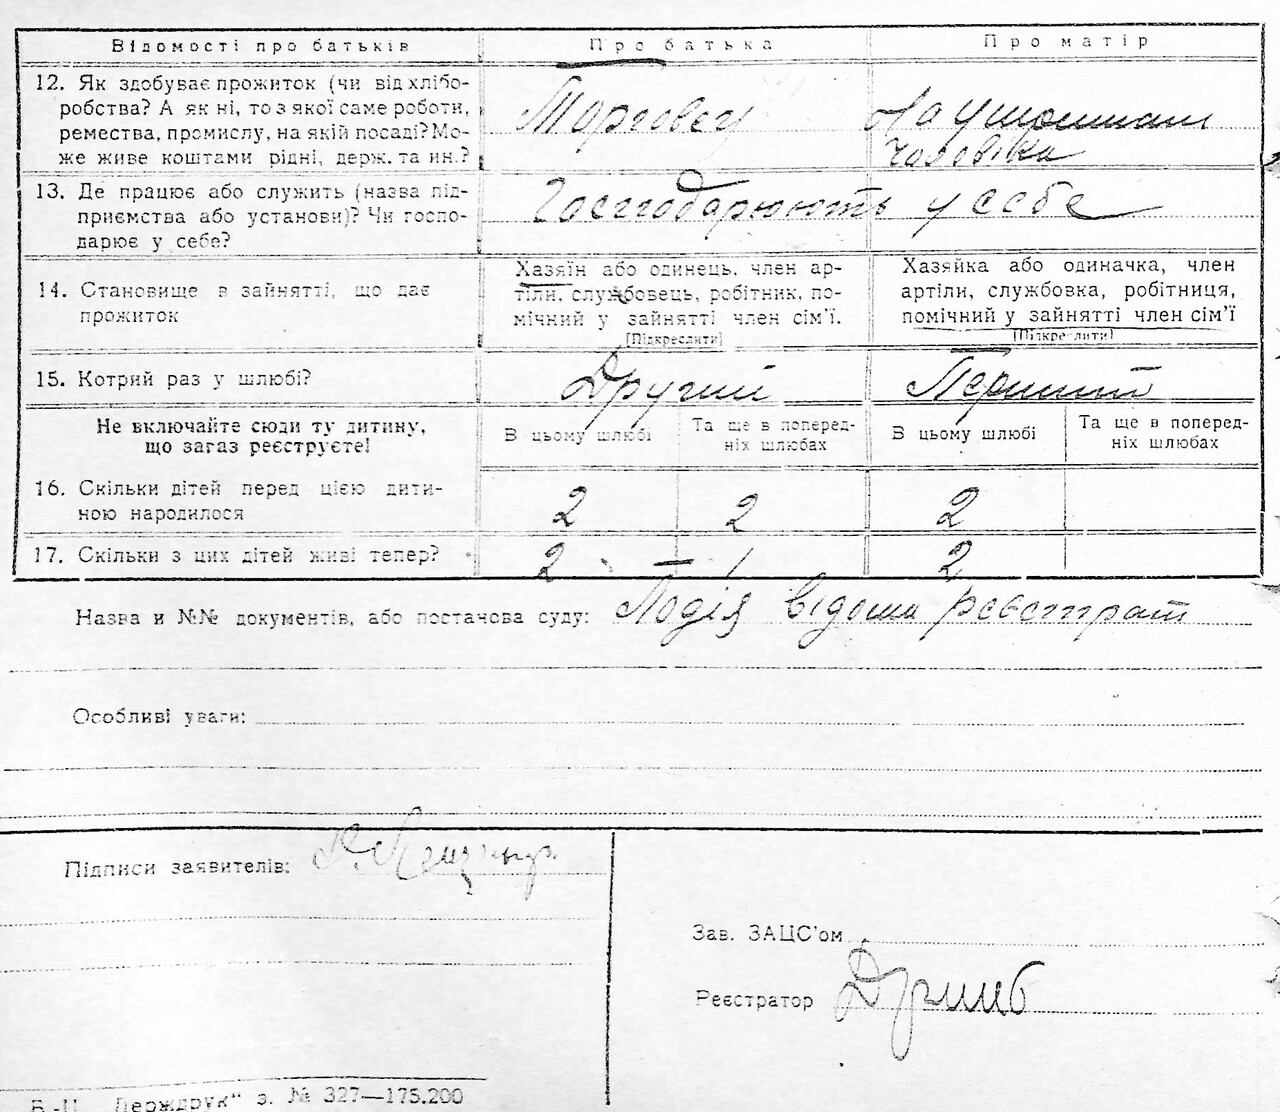 Відомості про батьків
Про батька
Про матір
12. Як здобуває прожиток (чи від хлібо-
робства? А як ні, то з якої саме роботи,
ремества, промислу, на якій посаді? Мо-
же живе коштами рідні, держ. та ин.?
Торговец
На утриманні
чоловіка
13. Де працює або служить (назва під-
приємства або установи)? Чи госпо-
дарює у себе?
Господарюють у себе
14. Становище в зайнятті, що дає
прожиток
Хазяїн або одинець, член ар-
тіли, службовець, робітник, по-
мічний у зайнятті член сім'ї.
[Підкреслити]
Хазяйка або одиначка, член
артіли, службовка, робітниця,
помічний у зайнятті член сім'ї
[Підкреслити]
15. Котрий раз у шлюбі?
Другий
Перший
Не включайте сюди ту дитину,
що зараз реєструєте!
В цьому шлюбі
Та ще в поперед-
ніх шлюбах
В цьому шлюбі
Та ще в поперед-
ніх шлюбах
16. Скільки дітей перед цією дити-
ною народилося
2
2
2
17. Скільки з цих дітей живі тепер?
2
1
2
Назва и №№ документів, або постанова суду: Подія відома реєстрат
Особливі уваги:
Підписи заявителів:
Зав. ЗАЦС'ом
Реєстратор
"Держдрук" з. № 327—175.200